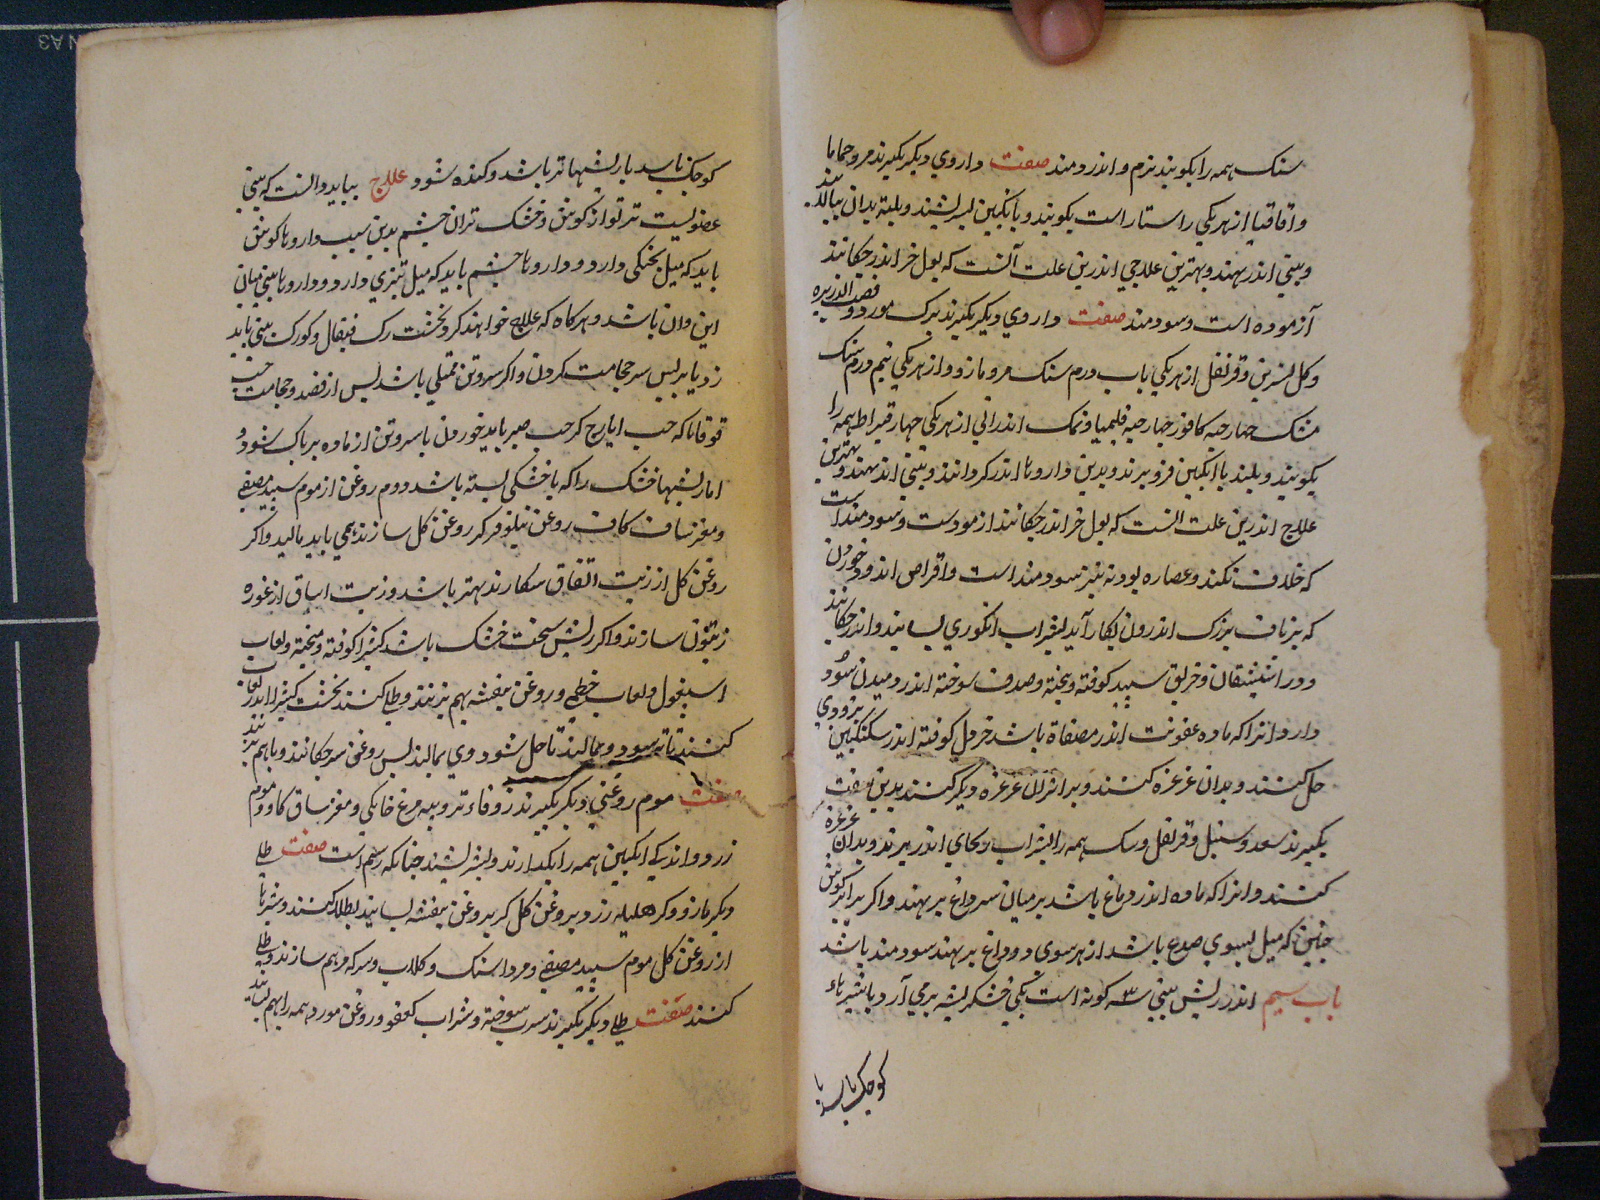 سنک همه را بکوبند نرم و اندر دمند صفت داروي دیکر بکیرند مر و حماما
و اقاقیا از هر یکي راستا راست بکوبند و بانکبین بسرشند و بلیته بدان بیالایند
و بیني اندر نهند و بهترین علاجي اندرین علت آنست که بول خر اندر چکانند
آزموده است و سودمند صفت داروي دیکر بکیرند برک مورد و قصب الذریره
و کل نسرین و قرنفل از هر یکي درم سنک مر و مازو از هر یکي نیم درم سنک
مشک چهار حبه کافور چهار حبه قلیمیا و نمک اندراني از هر یکي چهار قیراط همه را
بکوبند و بلیته باانکبین فرو برند و بدین داروها اندر کردانند و ببیني اندر نهند و بهترین
علاج اندرین علت انست که بول خر اندر چکانند ازمودست و سودمند است
که خلاف نکند و عصاره بودنه نیز سودمند است و اقراص اندر و خوردن
که تریاق بزرک اندرون بکار آید بشراب انکوري بسایند و اندر چکانند
و خربق سپید کوفته و بیخته و صدف سوخته اندر دمیدن سود
دارد انرا که ماده عفونت اندر مصفاة باشد خردل کوفته اندر سکنکبین
حل کنند و بدان غرغره کنند و بر اثر ان غرغره دیکر کنند بدین صفت
بکیرند سعد و سنبل و قرنفل و سک همه را بشراب ریحاني اندر پزند و بدان غرغره
کنند و انرا که ماده اندر دماغ باشد بر میان سر داغ بر نهند و اکر برابر کوش
چنین که میل بسوي صدغ باشد از هر سوي دو داغ بر نهند سودمند باشد
باب سیم اندر ریش بیني سه کونه است یکي خشکریشه برمي آرد با بثرهاء
کوچک باید با
کوچک باید با ریشها تر باشد و کنده شود علاج بباید دانست که بیني
عضویست تر تر از کوش و خشک تر از چشم بدین سبب داروها کوش
باید که میل بخشکي دارد و داروها چشم باید که میل بتري دارد و داروها بیني میان
این و آن باشد و هرکاه که علاج خواهند کرد نخست رک قیفال و کورک بیني باید
زد یا بر پس سر حجامت کردن و اکر سر و تن ممتلي باشد پس از فصد و حجامت حب
قوقایا که حب ایارج کر حب صبر باید خوردن تا سر و تن از ماده بر پاک شود و
اما ریشها خشک را که با خشکي بسته باشد دوم روغن از موم سپید مصفي
و مغز ساق کاو روغن نیلوفر کر روغن کل سازند همي باید مالید و اکر
روغن کل از زیت انفاق بکار برند بهتر باشد و زیت انفاق از غوره
زیتون سازند و اکر ریش سخت خشک باشد کثیرا کوفته و بیخته و لعاب
اسبغول و لعاب خطمي و روغن بنفشه بهم بزنند و طلا کنند نخست کثیرا اندر لعاب
کنند تا تر شود و بمالند تا حل شود و بمالند پس روغن بر چکانند و باهم بزنند
صفت موم روغني دیکر بکیرند زوفاء تر و پیه مرغ خانکي و مغز ساق کاو و موم
زرد و اندکي انکبین همه را بکدازند و بسرشند چنانکه رسم است صفت طلي
دیکر مازو و کر هلیله زرد بروغن کل کر بروغن بنفشه بسایند و طلا کنند و شرها
از روغن کل موم سپید مصفي و مرداسنک و کلاب و سرکه مرهم سازند و طلا
کنند صفت طلي دیکر بکیرند سرب سوخته و شراب کهن و روغن مورد همه را بهم بسایند